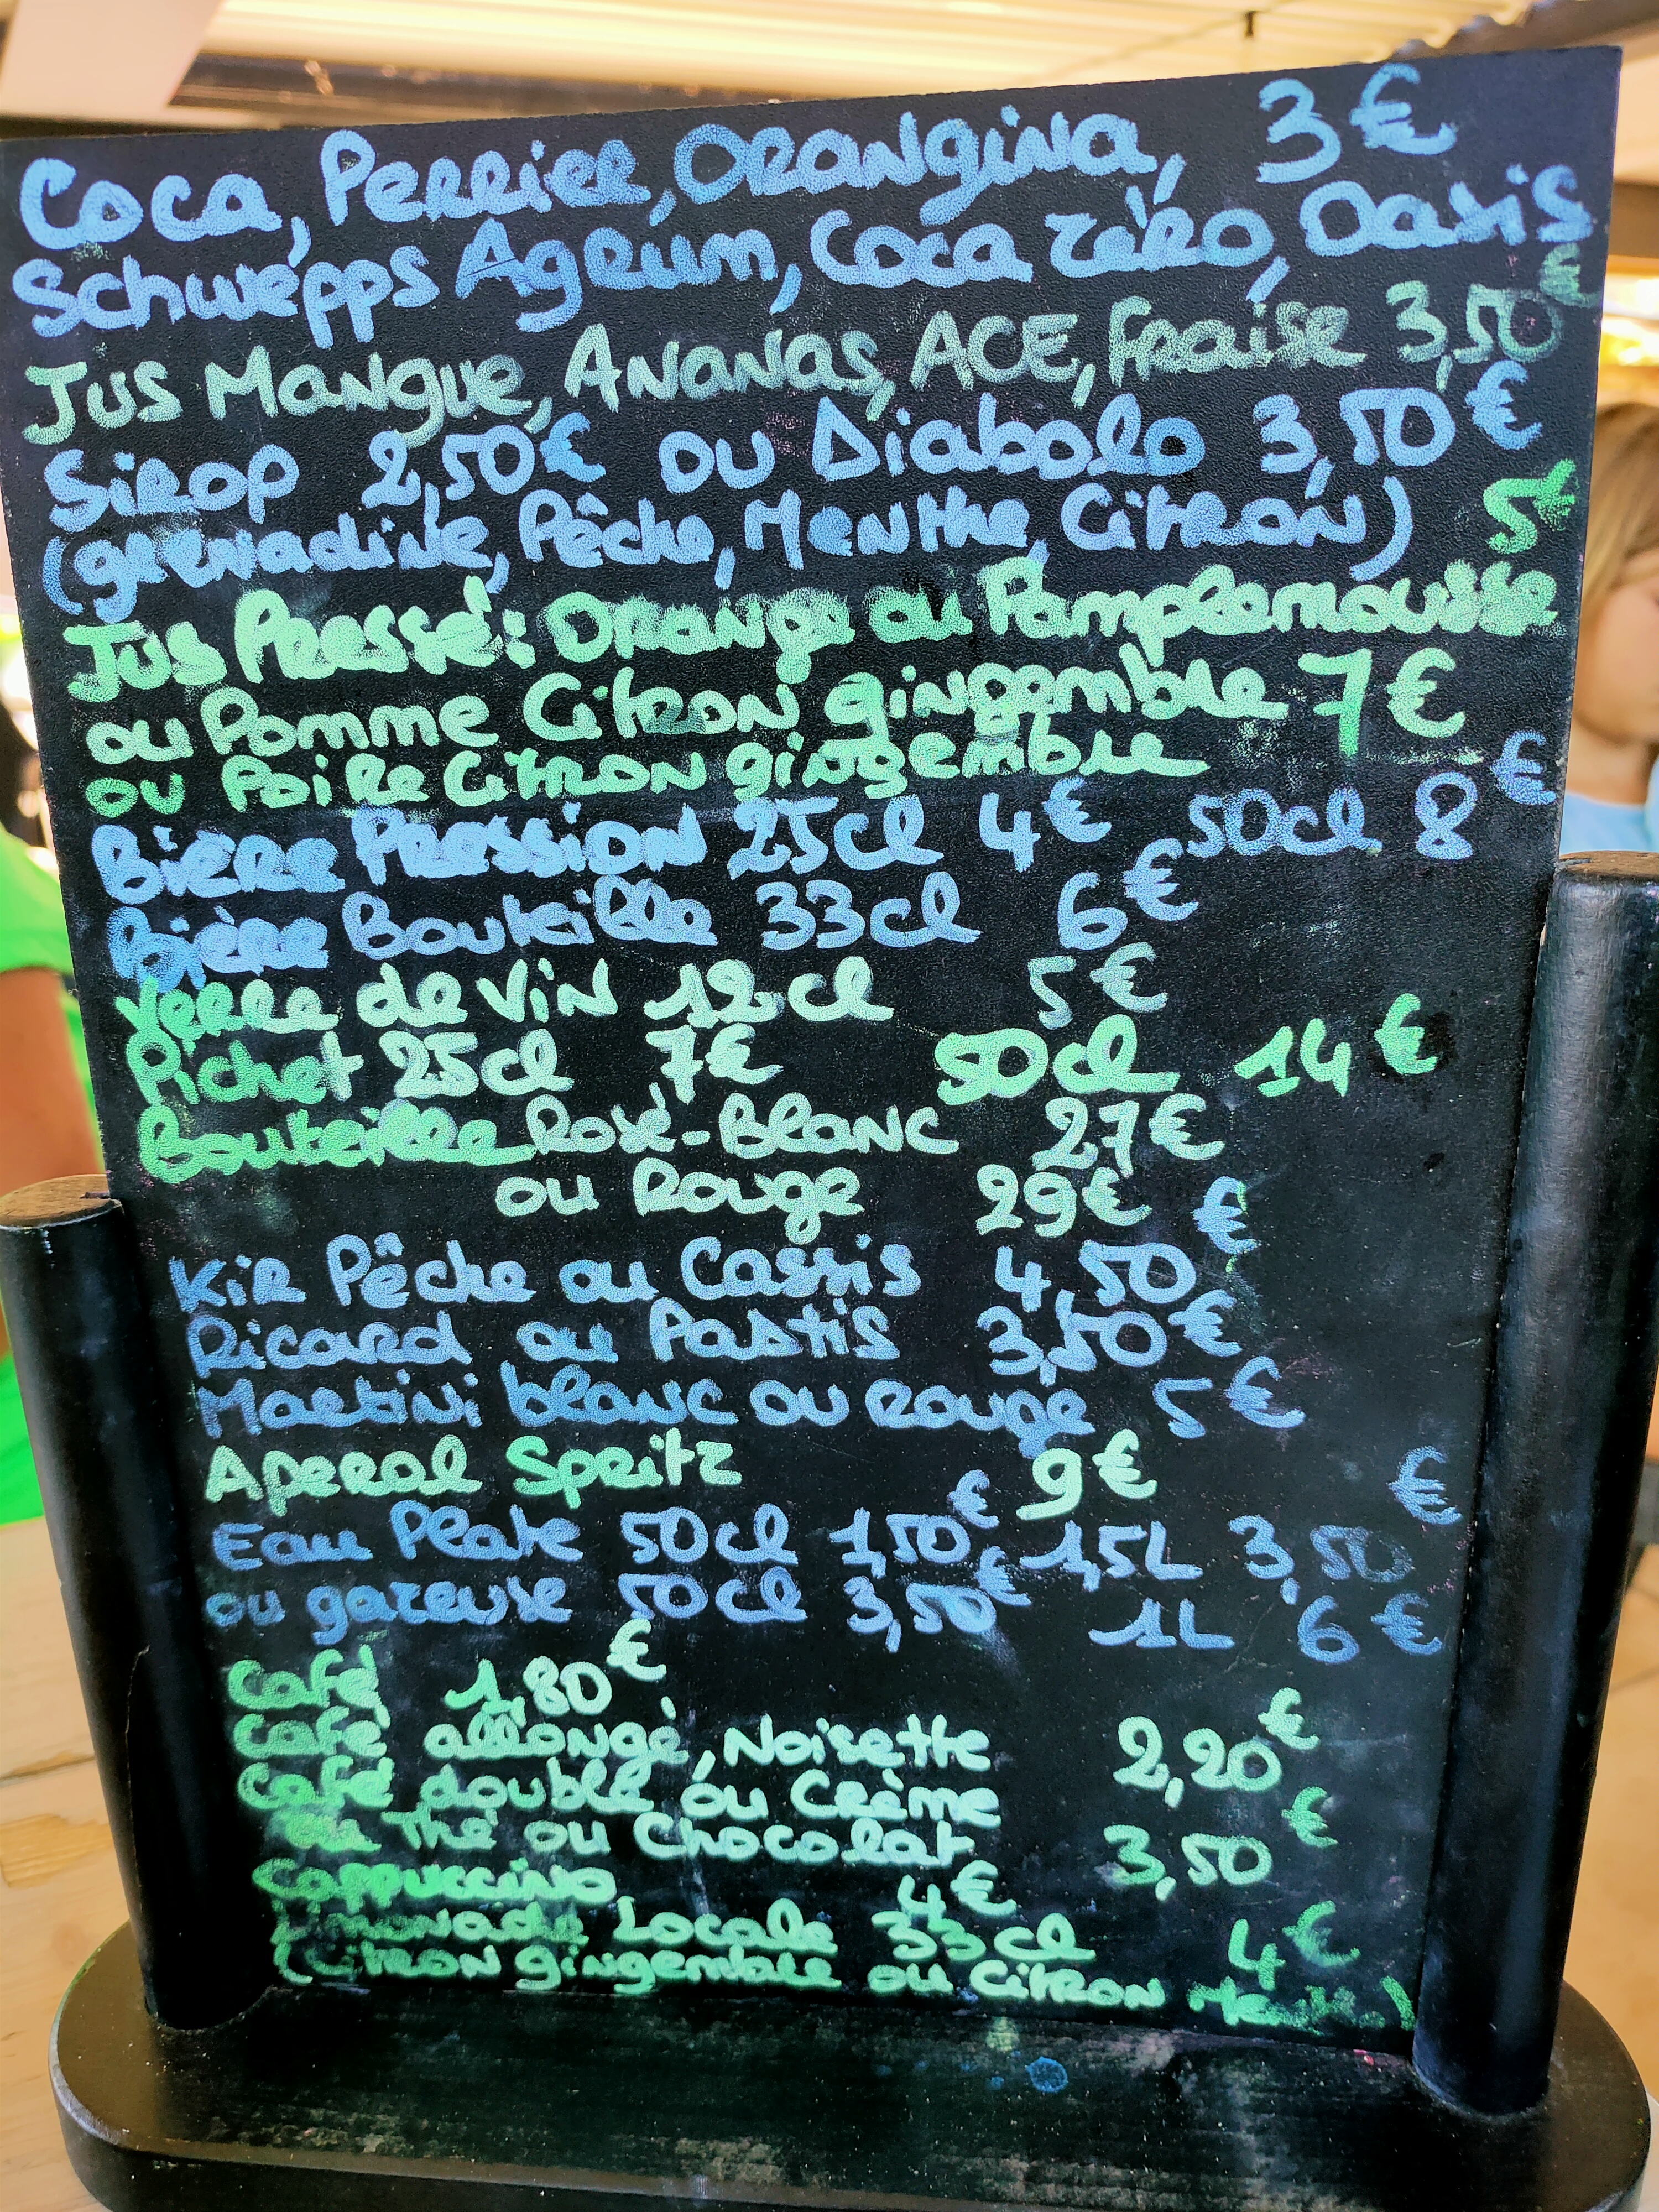 Coca, Perrier, Orangina, 3€
Schwepps Agrum, Coca zéro, Oasis
Jus Mangue, Ananas, ACE, Fraise 3,50€
Sirop 2,50€ ou Diabolo 3,50€
(grenadine, Pêche, Menthe, Citron)
Jus Pressé: Orange ou Pamplemousse 5€
ou Pomme Citron gingembre 7€
ou Poire Citron gingembre
Bière Pression 25cl 4€ 50cl 8€
Bière Bouteille 33cl 6€
Verre de Vin 12cl 5€
Pichet 25cl 7€ 50cl 14€
Bouteille Rosé-Blanc 27€
ou Rouge 29€
Kir Pêche ou Cassis 4,50€
Ricard ou Pastis 3,50€
Martini blanc ou rouge 5€
Aperol Spritz 9€
Eau Plate 50cl 1,50€ 1,5L 3,50€
ou gazeuse 50cl 3,50€ 1L 6€
Café 1,80€
Café allongé, Noisette 2,20€
Café double ou Crème
Thé ou Chocolat 3,50€
Cappuccino 4€
Limonade Locale 33cl 4€
(Citron gingembre ou Citron Menthe)